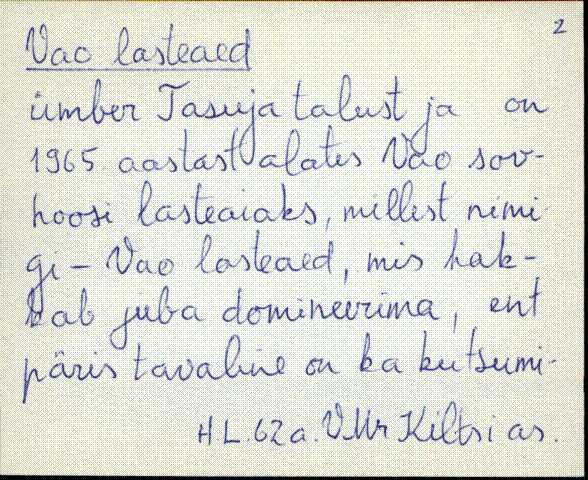 2
Vao lasteaed
ümber Tasuja talust ja on
1965. aastast alates Vao sov-
hoosi lasteaiaks, millest nimi
gi - Vao lasteaed, mis hak-
kab juba domineerima, ent
päris tavaline on ka kutsumi-
H.L. 62 a. V.Mr Kiltsi as.